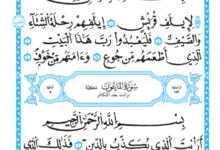 لِإِيلَٰفِ قُرَيْشٍ ۝ إِۦلَٰفِهِمْ رِحْلَةَ ٱلشِّتَآءِ
وَٱلصَّيْفِ ۝ فَلْيَعْبُدُوا۟ رَبَّ هَٰذَا ٱلْبَيْتِ ۝
ٱلَّذِىٓ أَطْعَمَهُم مِّن جُوعٍ وَءَامَنَهُم مِّنْ خَوْفٍۭ ۝
سُورَةُ الْمَاعُونِ
بِسْمِ ٱللَّهِ ٱلرَّحْمَٰنِ ٱلرَّحِيمِ
أَرَءَيْتَ ٱلَّذِى يُكَذِّبُ بِٱلدِّينِ ۝ فَذَٰلِكَ ٱلَّذِى